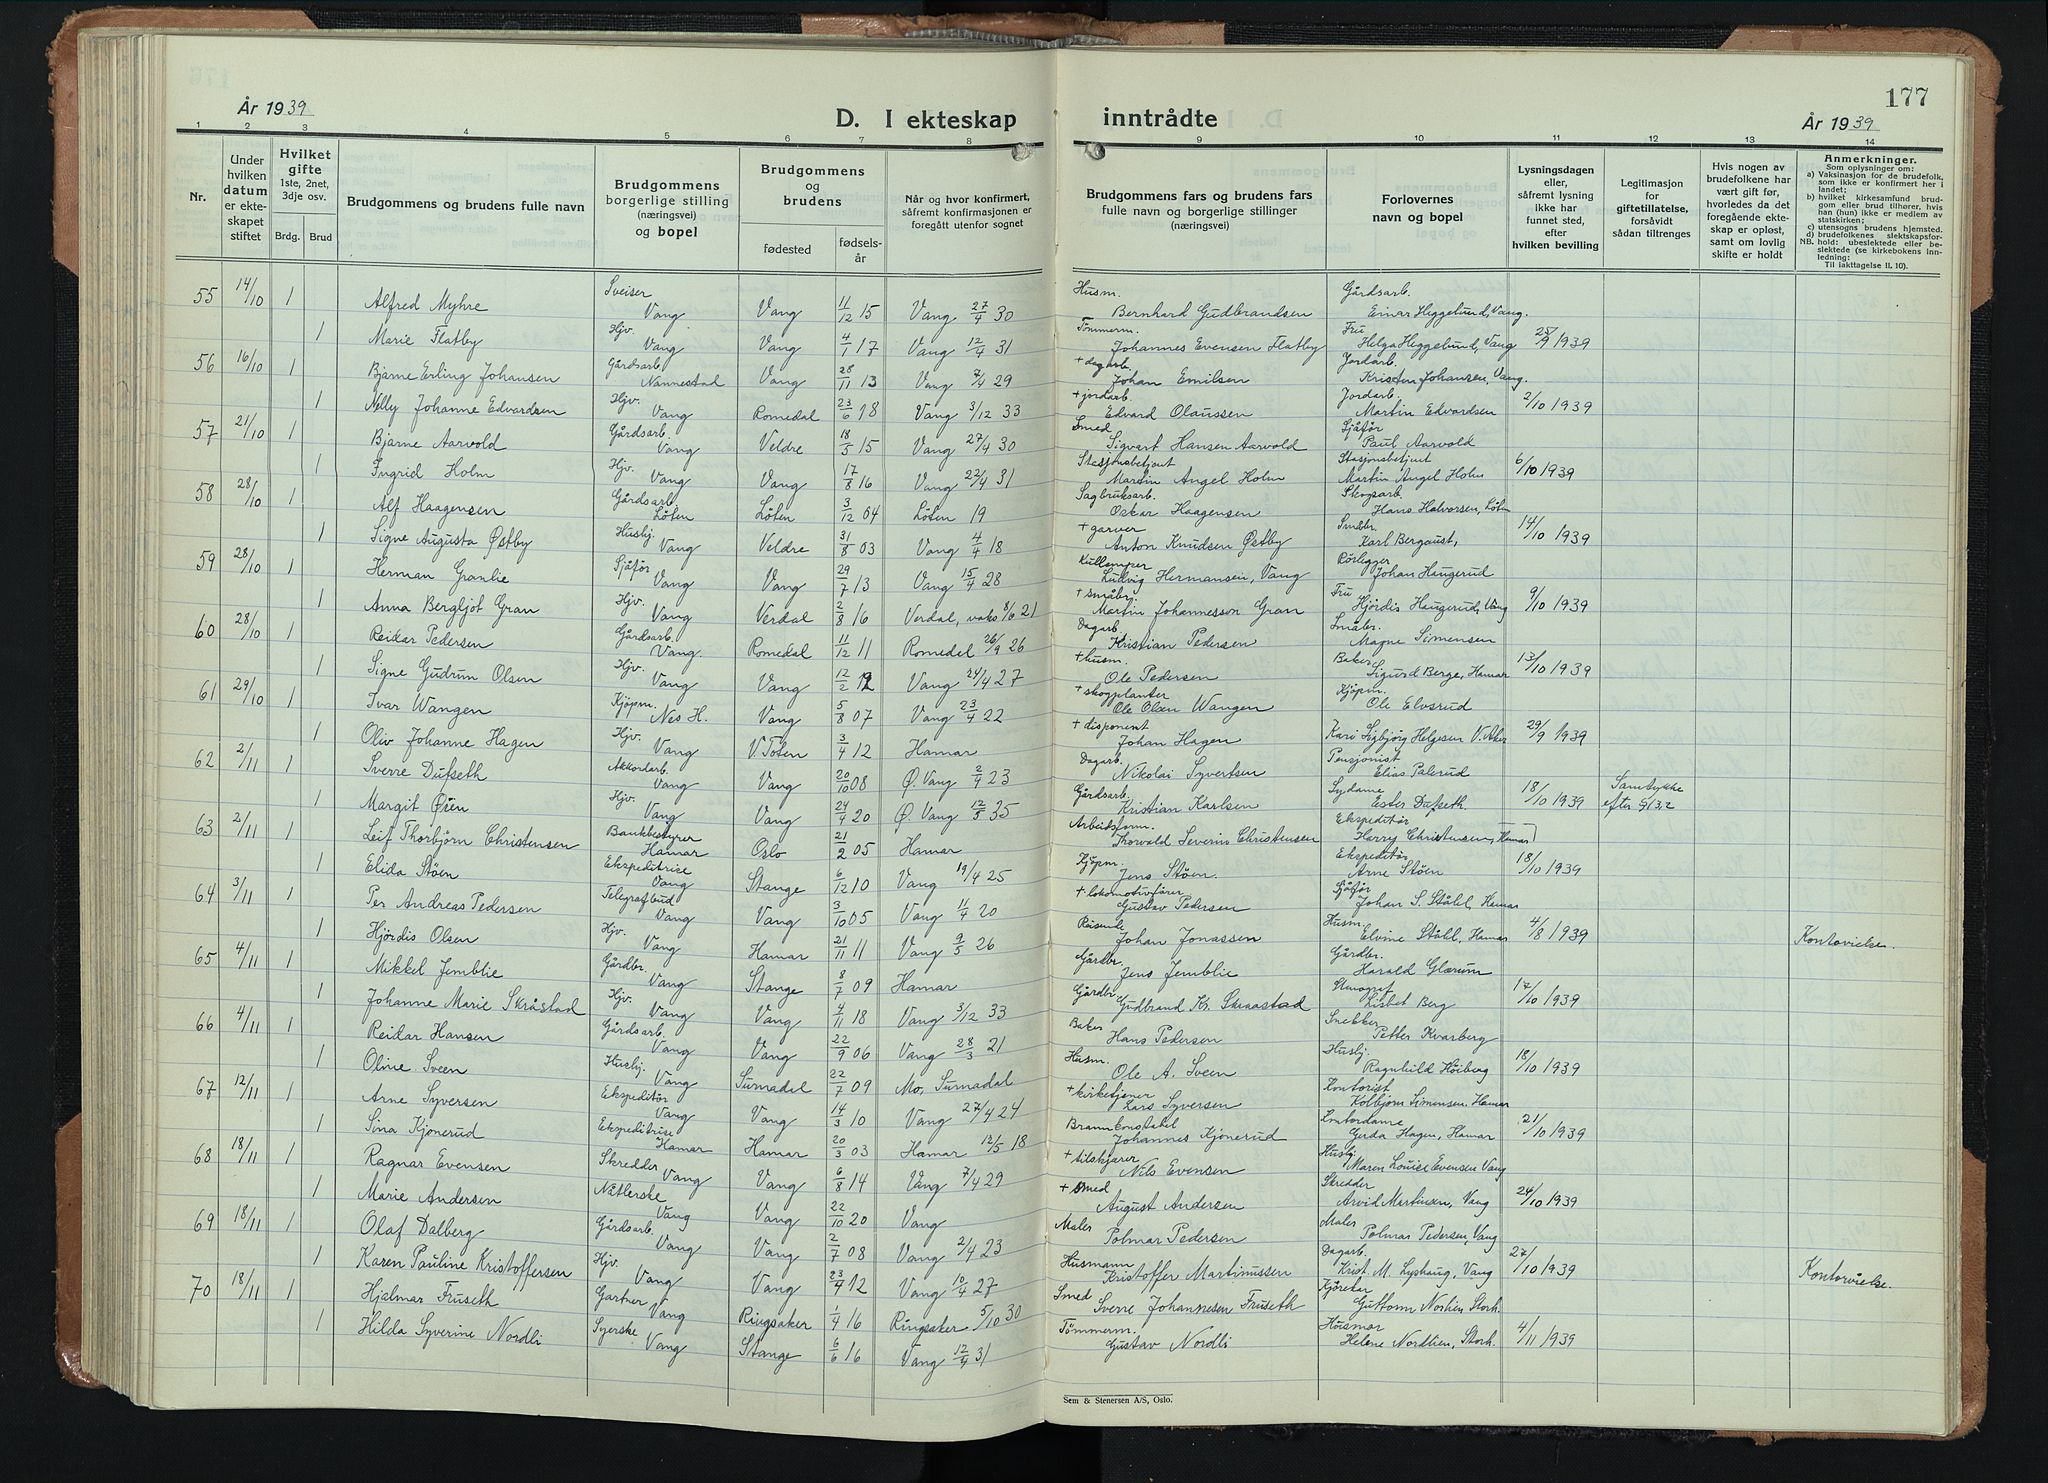 177
År 1939
D. I ekteskap inntrådte
År 1939
1 2 3 4 5 6 7 8 9 10 11 12 13 14
Nr.
Under hvilken datum er ekteskapet stiftet
Hvilket gifte 1ste, 2net, 3dje osv.
Brdg. Brud
Brudgommens og brudens fulle navn
Brudgommens borgerlige stilling (næringsvei) og bopel
Brudgommens og brudens
fødested
fødselsår
Når og hvor konfirmert, såfremt konfirmasjonen er foregått utenfor sognet
Brudgommens fars og brudens fars fulle navn og borgerlige stillinger (næringsvei)
Forlovernes navn og bopel
Lysningsdagen eller, såfremt lysning ikke har funnet sted, efter hvilken bevilling
Legitimasjon for giftetillatelse, forsåvidt sådan tiltrenges
Hvis nogen av brudefolkene har vært gift før, hvorledes da det foregående ekteskap er opløst, samt om lovlig skifte er holdt
Anmerkninger.
Som oplysninger om:
a) Vaksinasjon for de brudefolk, som ikke er konfirmert her i landet;
b) hvilket kirkesamfund brudgom eller brud tilhører, hvis han (hun) ikke er medlem av statskirken;
c) utensogns brudens hjemsted.
d) brudefolkenes slektskapsforhold: ubeslektede eller beslektede (se kirkebokens innledning:
NB. Til iakttagelse II. 10).
55 14/10 1 Alfred Myhre Sveiser Vang Vang 11/12 15 Vang 27/4 30 Husm. Bernhard Gudbrandsen Gårdsarb. Einar Heggelund, Vang.
1 Marie Flatby Hjv. Vang Vang 4/1 17 Vang 12/4 31 Tömmerm. Johannes Evensen Flatby Fru Helga Heggelund, Vang 25/9 1939
56 16/10 1 Bjarne Erling Johansen Gårdsarb. Nannestad Vang 28/11 13 Vang 7/4 29 + dagarb. Johan Emilsen Jordarb. Kristen Johansen, Vang.
1 Nelly Johanne Edvardsen Hjv. Vang Romedal 23/6 18 Vang 3/12 33 + jordarb. Edvard Olaussen Jordarb. Martin Edvardsen 2/10 1939
57 21/10 1 Bjarne Aarvold Gårdsarb. Vang Veldre 18/5 15 Vang 27/4 30 Smed Sigvart Hansen Aarvold Sjåför Paul Aarvold
1 Ingrid Holm Hjv. Vang Vang 17/8 16 Vang 22/4 31 Stasjonsbetjent Martin Angel Holm Stasjonsbetjent Martin Angel Holm 6/10 1939
58 28/10 1 Alf Haagensen Gårdsarb. Löten Löten 3/12 04 Löten 19 Sagbruksarb. Oskar Haagensen Skogsarb. Hans Halvorsen, Löten
1 Signe Augusta Østby Hushj. Vang Veldre 31/8 03 Vang 4/4 18 + garver Anton Knudsen Østby Småbr. Karl Bergaust, 14/10 1939
59 28/10 1 Herman Granlie Sjåför Vang Vang 29/7 13 Vang 15/4 28 Ludvig Hermansen, Vang Rörlegger Johan Haugerud
1 Anna Bergljot Gran Hjv. Vang Verdal 2/8 16 Verdal, vaks 8/6 21 + småbr. Martin Johannesson Gran Fru Hjördis Haugerud, Vang 9/10 1939
60 28/10 1 Reidar Pedersen Gårdsarb. Vang. Romedal 11/12 11 Romedal 26/9 26 Dagarb. Kristian Pedersen Småbr. Magne Simensen
1 Signe Gudrun Olsen Hjv. Vang Vang 12/2 12 Vang 24/4 27 + husm. Ole Pedersen Baker Sigurd Berge, Hamar 13/10 1939
61 29/10 1 Ivar Wangen Kjöpm. Nes H. Vang 5/8 07 Vang 23/4 22 + skogplanter Ole Olsen Wangen Kjöpm. Ole Elvsrud
1 Oliv Johanne Hagen Hjv. Vang V. Toten 3/4 12 Hamar + disponent Johan Hagen Kari Sigbjörg Helgesen V. Aker 29/9 1939
62 2/11 1 Sverre Dufseth Akkordarb. Vang Vang 20/10 08 Ø. Vang 2/4 23 Dagarb. Nikolai Syvertsen Pensjonist Elias Palerud
1 Margit Øien Hjv. Vang Vang 24/4 20 Ø Vang 12/5 35 Gårdsarb. Kristian Karlsen Sydame Ester Dufseth. 18/10 1939 Samtykke
63 2/11 1 Leif Thorbjörn Christensen Bankbestyrer Hamar Oslo 21/2 05 Hamar Arbeidsform. Thorvald Severin Christensen Ekspeditör Harry Christensen, Hamar
1 Elida Stöen Ekspeditrice Vang Stange 6/12 10 Vang 19/4 25 Kjöpm. Jens Stöen. Ekspeditör Arne Stöen 18/10 1939
64 3/11 1 Per Andreas Pedersen Telegrafbud Vang Vang 3/10 05 Vang 11/4 20 + lokomotivförer Gustav Pedersen Sjåför Johan S. Ståhl, Hamar
1 Hjördis Olsen Hjv. Vang Hamar 21/11 11 Vang 9/5 26 Reisende Johan Jonassen Husm. Elvine Ståhl, Hamar 4/8 1939 Kontorvielse.
65 4/11 1 Mikkel Jemblie Gårdbr. Vang Stange 8/7 09 Hamar Gårdbr. Jens Jemblie Gårdbr. Harald Glærum
1 Johanne Marie Skråstad Hjv. Vang Vang 4/11 18 Vang 3/12 33 Gårdbr Gudbrand Kr. Skraastad Stenograf Lisbet Berg 17/10 1939
66 4/11 1 Reidar Hansen Gårdsarb. Vang Vang 22/9 06 Vang 28/3 21 Baker Hans Pedersen Snekker Petter Kvarberg
1 Oline Sveen Hushj. Vang Surnadal 22/7 09 Mo, Surnadal Husm. Ole A. Sveen Hushj. Ragnhild Höiberg 18/10 1939
67 12/11 1 Arne Syversen Ekspeditör Vang Vang 14/3 10 Vang 27/4 24 + kirketjener Lars Syversen Kontorist Kolbjörn Simensen. Hamar
1 Sina Kjonerud Ekspeditrise Hamar Hamar 20/3 03 Hamar 12/5 18 Brannkonstabel Johannes Kjonerud Kontordame Gerda Hagen, Hamar 21/10 1939
68 18/11 1 Ragnar Evensen Skredder Vang Vang 6/8 14 Vang 7/4 29 + tilskjærer Nils Evensen Hushj Maren Louise Evensen Vang
1 Marie Andersen Nåtlerske Vang Vang 22/10 20 Vang + smed August Andersen Skredder Arvid Martinsen, Vang 24/10 1939
69 18/11 1 Olaf Dalberg Gårdsarb. Vang Vang 2/7 08 Vang 2/4 23 Maler Polmar Pedersen Maler Polmar Pedersen, Vang
1 Karen Pauline Kristoffersen Hjv. Vang Vang 23/4 12 Vang 10/4 27 Husmann Kristoffer Martinussen Dagarb. Krist. M. Lyshaug, Vang 27/10 1939 Kontorvielse.
70 18/11 1 Hjalmar Fruseth Gartner Vang Ringsaker 1/4 16 Ringsaker 5/10 30 Smed Sverre Johannesen Fruseth Guttorm Nortien Storh.
1 Hilda Syverine Nordli Syerske Vang Stange 6/6 16 Vang 12/4 31 Tömmerm. Gustav Nordli Helene Nordlien, Storh. 4/11 1939
Sem & Stenersen A/S, Oslo.